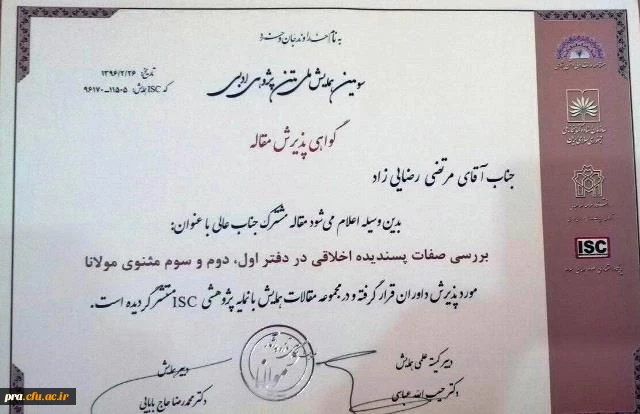 به نام خداوند جان و خرد
سومین همایش ملی متن پژوهی ادبی
تاریخ: ۱۳۹۶/۲/۲۶
کد ISC همایش: ۱۱۵۰۵-۹۶۱۷۰
گواهی پذیرش مقاله
جناب آقای مرتضی رضایی زاد
بدین وسیله اعلام می‌شود مقاله مشترک جناب عالی با عنوان:
بررسی صفات پسندیده اخلاقی در دفتر اول، دوم و سوم مثنوی مولانا
مورد پذیرش داوران قرار گرفته و در مجموعه مقالات همایش با نمایه پژوهشی ISC منتشر گردیده است.
دبیر کمیته علمی همایش
دکتر حبیب الله عباسی
دبیر همایش
دکتر محمدرضا حاج بابایی
مولانا
سازمان اسناد و کتابخانه ملی
جمهوری اسلامی ایران
ISC
pra.cfu.ac.ir